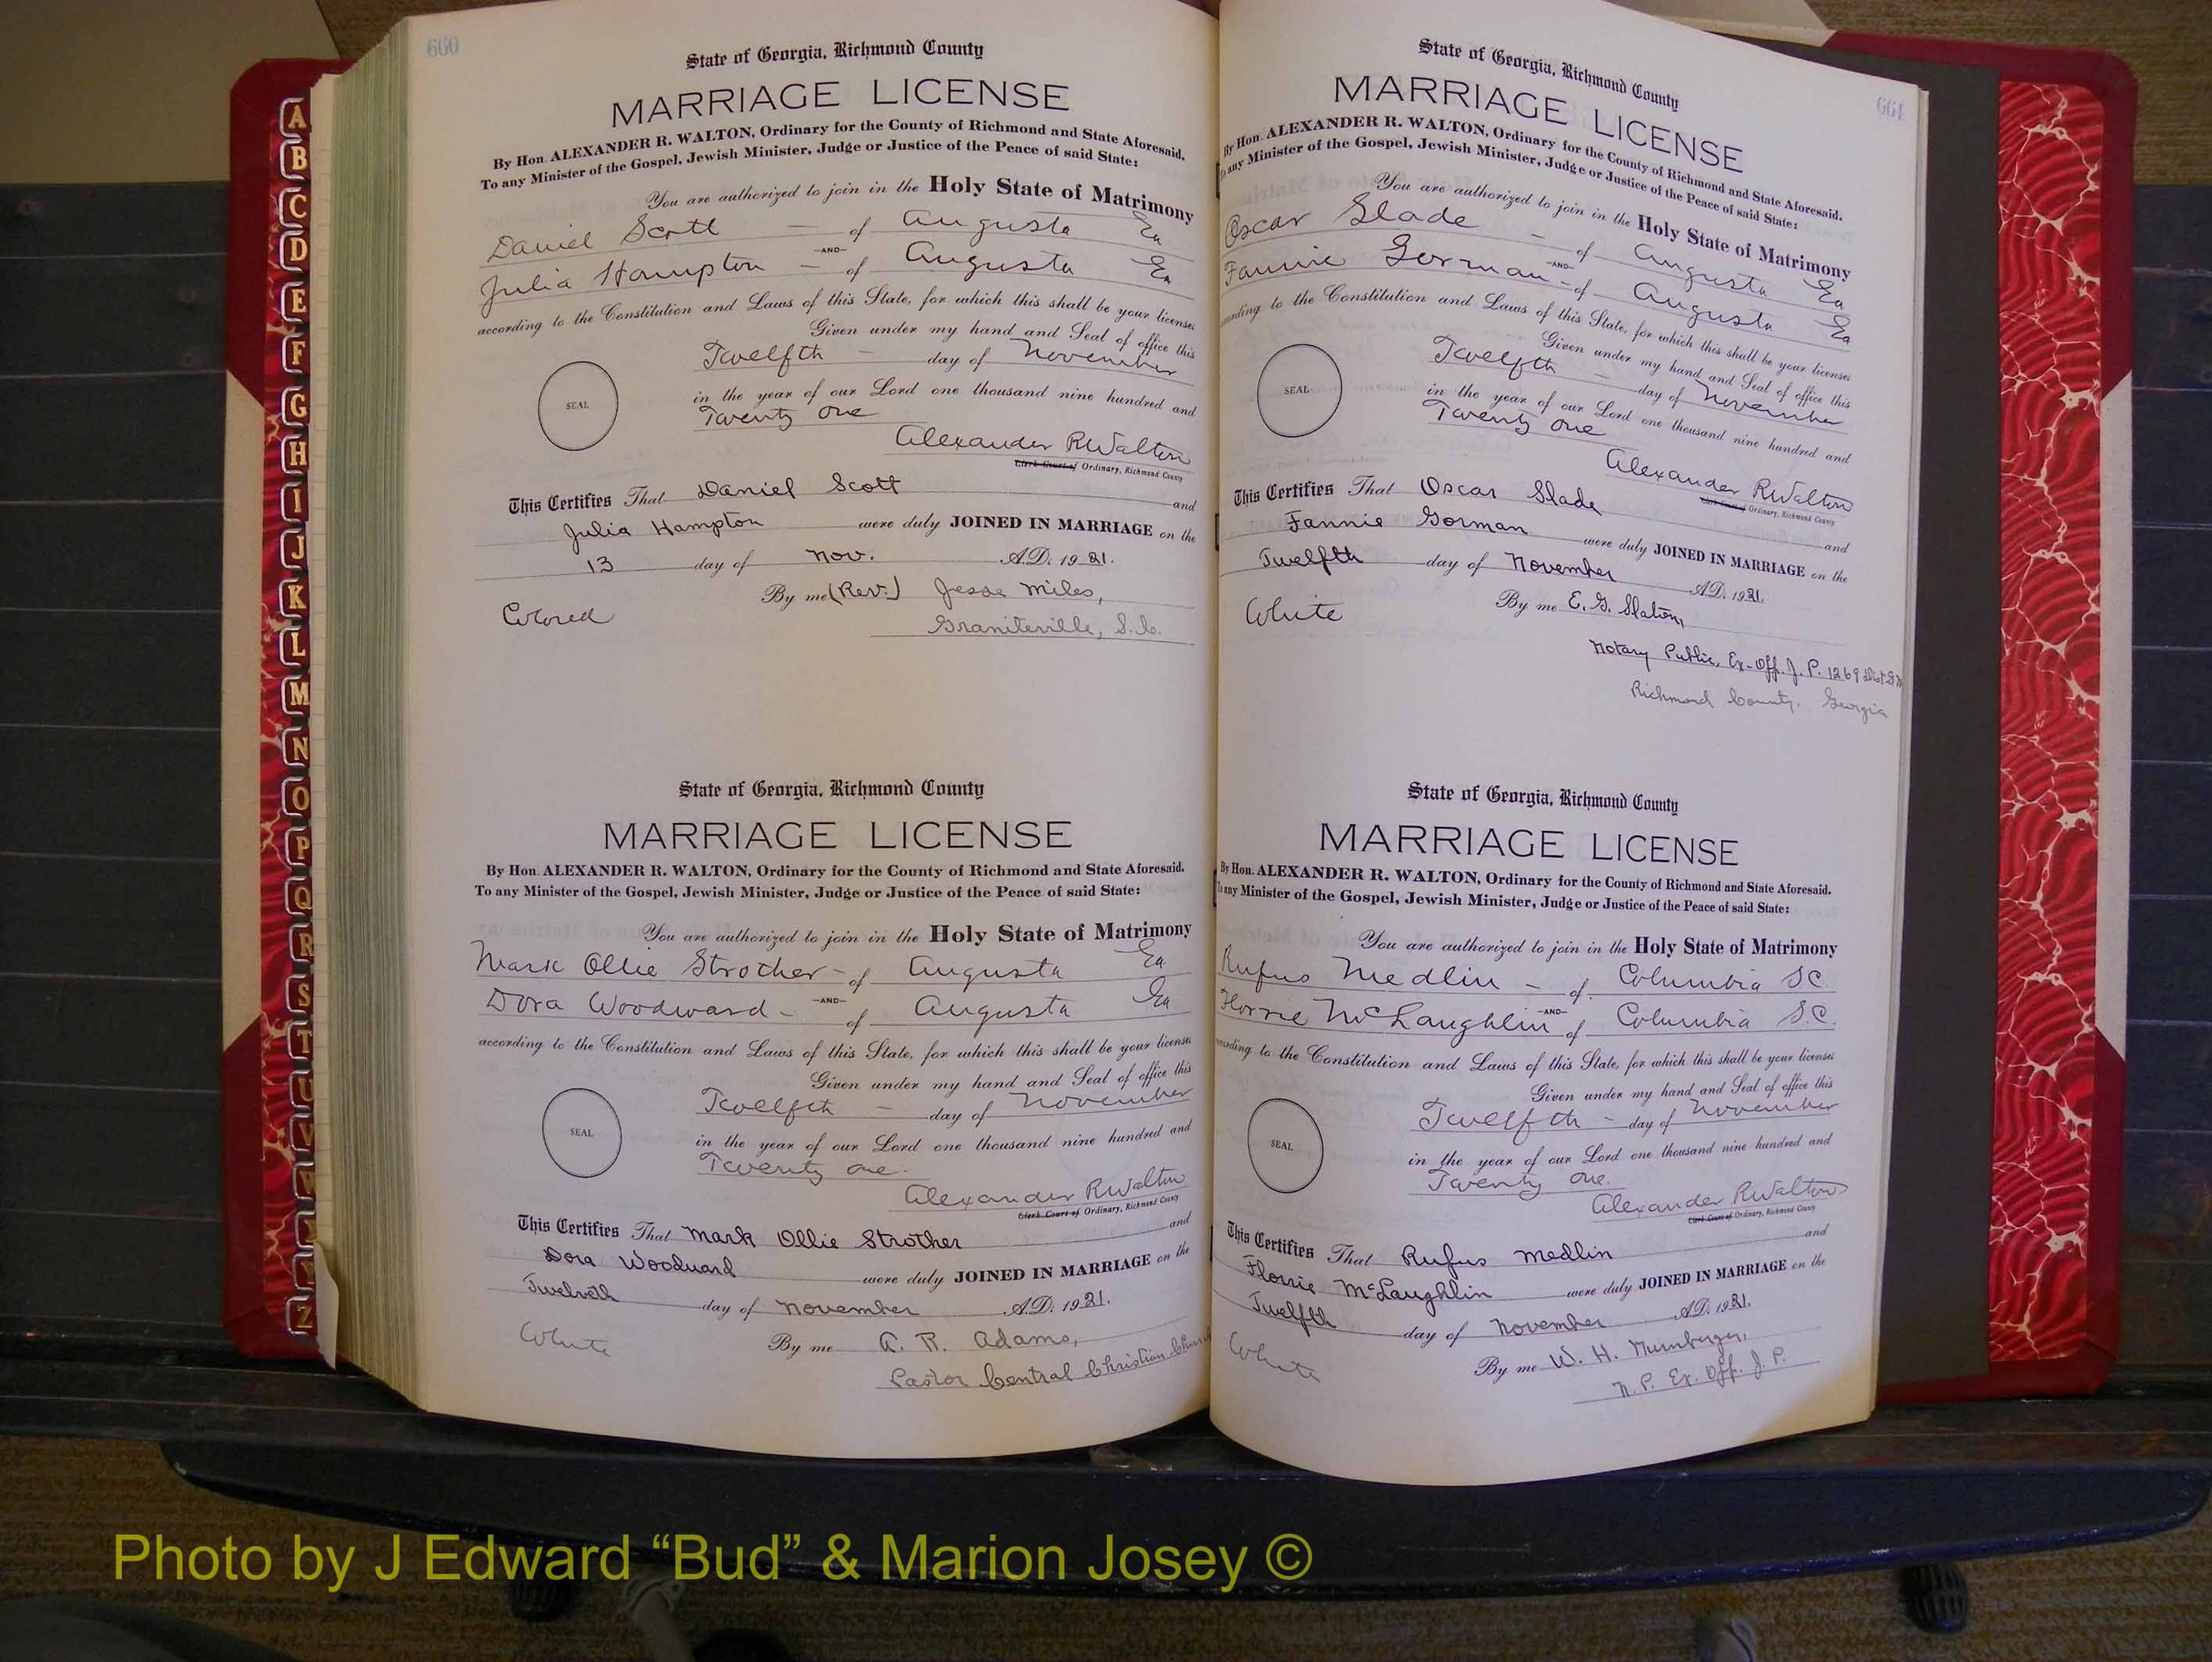 A
B
C
D
E
F
G
H
I
J
K
L
M
N
O
P
Q
R
S
T
U
V
W
Z
660
State of Georgia, Richmond County
MARRIAGE LICENSE
By Hon. ALEXANDER R. WALTON, Ordinary for the County of Richmond and State Aforesaid.
To any Minister of the Gospel, Jewish Minister, Judge or Justice of the Peace of said State:
You are authorized to join in the Holy State of Matrimony
Daniel Scott — of Augusta Ga
—AND—
Julia Hampton — of Augusta Ga
according to the Constitution and Laws of this State, for which this shall be your license
Given under my hand and Seal of office this
Twelfth — day of November
SEAL
in the year of our Lord one thousand nine hundred and
Twenty one
Alexander R Walton
Clerk Court of Ordinary, Richmond County
This Certifies That Daniel Scott and
Julia Hampton were duly JOINED IN MARRIAGE on the
13 day of Nov. A.D. 1921.
By me (Rev.) Jesse Miles,
Colored Graniteville, S.C.
State of Georgia, Richmond County
MARRIAGE LICENSE
By Hon. ALEXANDER R. WALTON, Ordinary for the County of Richmond and State Aforesaid.
To any Minister of the Gospel, Jewish Minister, Judge or Justice of the Peace of said State:
You are authorized to join in the Holy State of Matrimony
Mark Ollie Strother - of Augusta Ga
—AND—
Dora Woodward - of Augusta Ga
according to the Constitution and Laws of this State, for which this shall be your license
Given under my hand and Seal of office this
Twelfth — day of November
SEAL
in the year of our Lord one thousand nine hundred and
Twenty one.
Alexander R Walton
Clerk Court of Ordinary, Richmond County
This Certifies That Mark Ollie Strother and
Dora Woodward were duly JOINED IN MARRIAGE on the
day of November A.D. 1921.
White By me A. R. Adams,
Pastor Central Christian Church
661
State of Georgia, Richmond County
MARRIAGE LICENSE
By Hon. ALEXANDER R. WALTON, Ordinary for the County of Richmond and State Aforesaid.
To any Minister of the Gospel, Jewish Minister, Judge or Justice of the Peace of said State:
You are authorized to join in the Holy State of Matrimony
Oscar Slade — of Augusta Ga
—AND—
Fannie Gorman - of Augusta Ga
according to the Constitution and Laws of this State, for which this shall be your license
Given under my hand and Seal of office this
Twelfth — day of November
SEAL
in the year of our Lord one thousand nine hundred and
Twenty one
Alexander R Walton
Clerk Court of Ordinary, Richmond County
This Certifies That Oscar Slade and
Fannie Gorman were duly JOINED IN MARRIAGE on the
Twelfth day of November A.D. 1921.
White By me E. G. Slaton,
Notary Public, Ex-Off. J. P. 1269 Dist G M
Richmond County. Georgia
State of Georgia, Richmond County
MARRIAGE LICENSE
By Hon. ALEXANDER R. WALTON, Ordinary for the County of Richmond and State Aforesaid.
To any Minister of the Gospel, Jewish Minister, Judge or Justice of the Peace of said State:
You are authorized to join in the Holy State of Matrimony
Rufus Medlin — of Columbia SC
—AND—
Florrie McLaughlin of Columbia S.C.
according to the Constitution and Laws of this State, for which this shall be your license
Given under my hand and Seal of office this
Twelfth - day of November
SEAL
in the year of our Lord one thousand nine hundred and
Twenty one.
Alexander R Walton
Clerk Court of Ordinary, Richmond County
This Certifies That Rufus Medlin and
Florrie McLaughlin were duly JOINED IN MARRIAGE on the
Twelfth day of November A.D. 1921.
White By me W. H.
N. P. Ex. Off. J. P.
Photo by J Edward “Bud” & Marion Josey ©